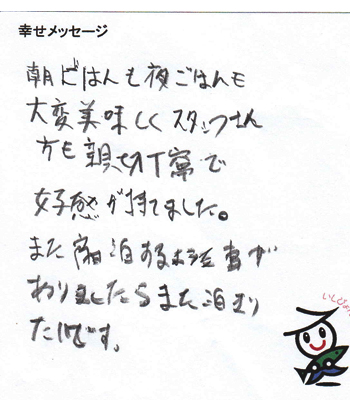 幸せメッセージ
朝ごはんも夜ごはんも
大変美味しくスタッフさん
方も親切丁寧で
好感が持てました。
また宿泊するお仕事が
ありましたらまた泊まり
たいです。